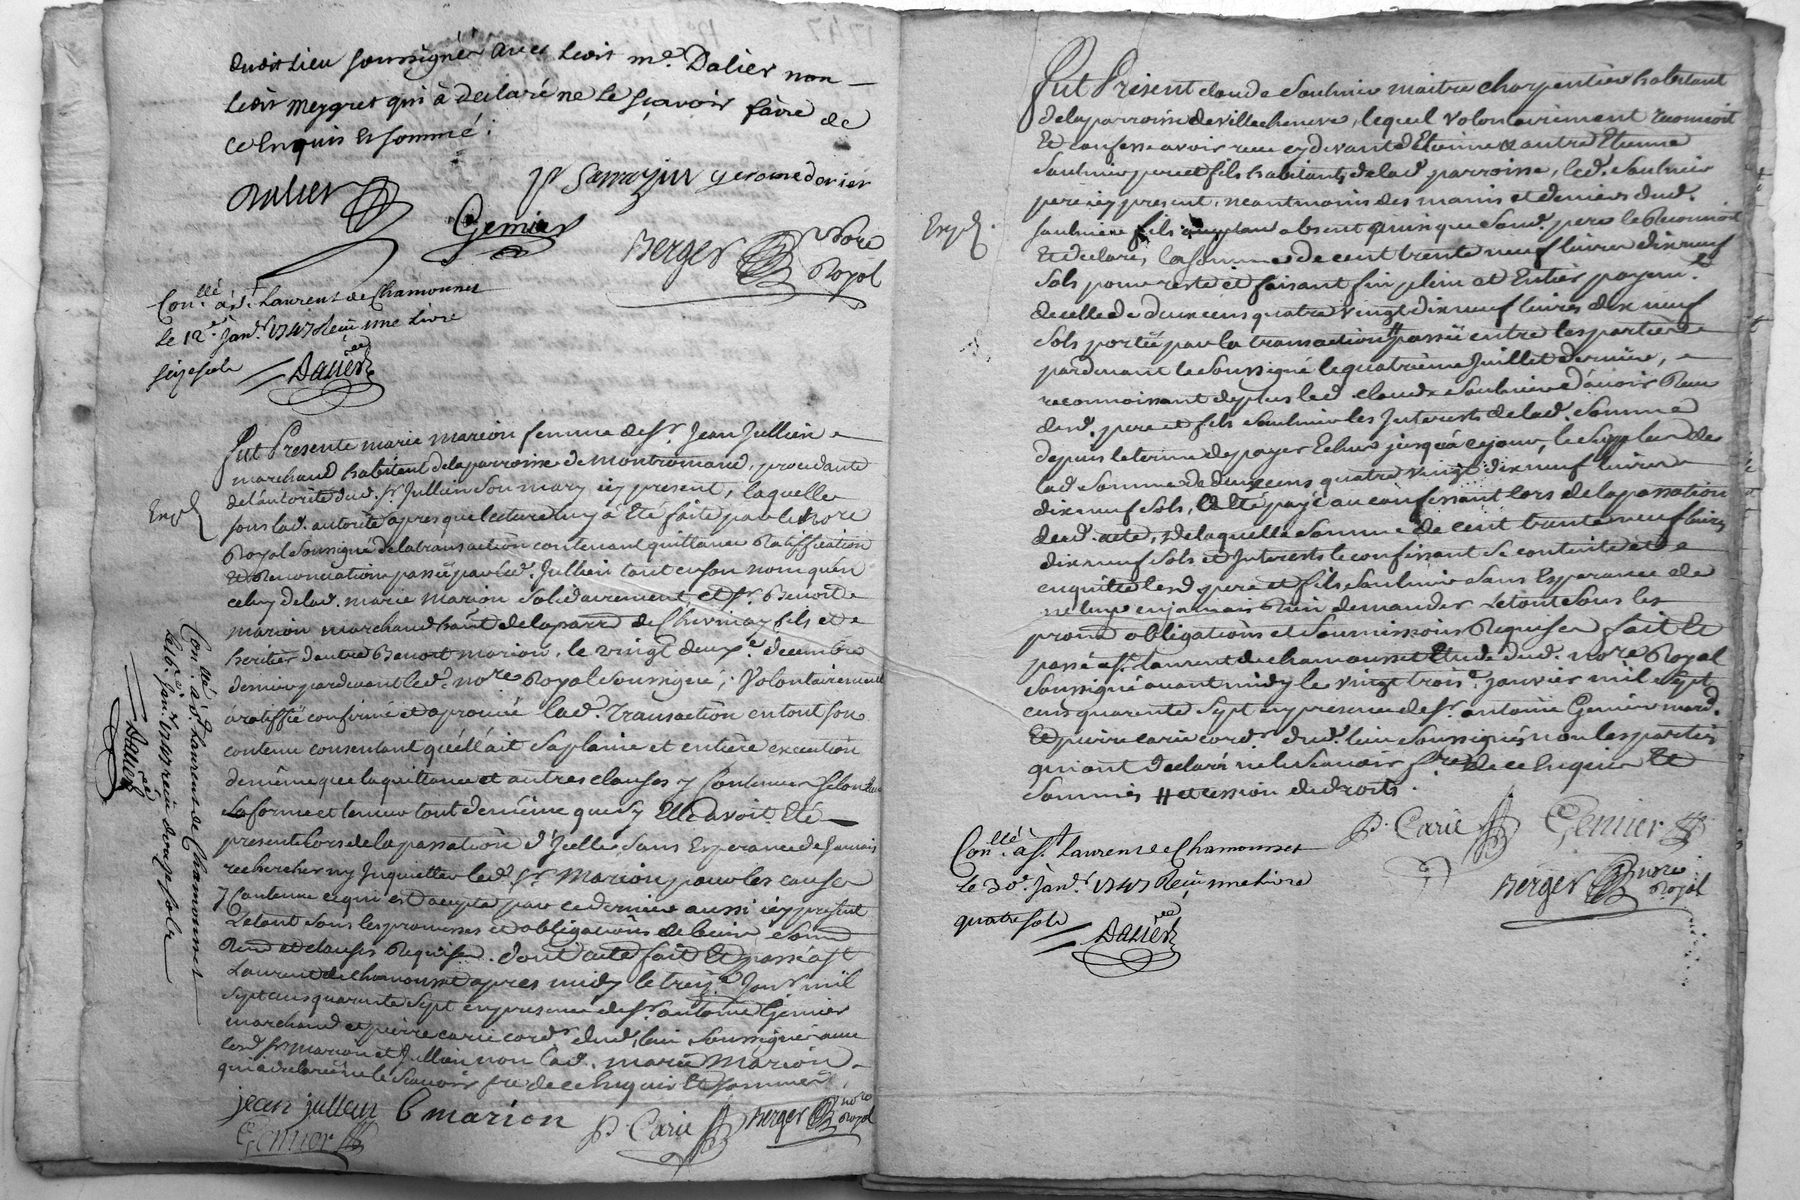 dudit Lieu soussignés avec ledit me. Dalier non
ledit Meygret qui à déclaré ne le sçavoir faire de
ce Enquis et sommé.
Dalier
P Sarrazin gerome derier
Gemier
Berger nore
Royal
Con.llé à St. Laurens de Chamousset
le 12e. Janr. 1747 Reçu une livre
seize sols
Dalier
Fut Presente marie marion femme de Sr. Jean Jullien
marchand habitant de la parroisse de Montromand, procedante
de l'autorité dud. Sr Jullien son mary icy present, laquelle
sous lad. autorité apres que lecture luy à Eté faite par le nore
Exp.d
Royal soussigné de la transaction contenant quittance Ratiffication
et Renonciation passée par led. Jullien tant en son nom qu'en
celuy de lad. marie Marion solidairement, et sr. Benoit
marion marchand habt de la parre de Chevinay fils et
heritier d'autre Benoit marion, le vingt deuxe. decembre
dernier pardevant led. nore Royal soussigné, Volontairement
à ratiffié confirmé et aprouvé lad. Transaction en tout son
contenu consentant qu'elle ait sa plaine et entiere execution
de même que la quittance et autres clauses y Contenues selon
sa forme et teneur tout de même que sy Elle avoit Eté
presente lors de la passation d'Icelle, sans Esperance de jamais
rechercher ny Inquietter led. Sr. Marion, pour les causes
y Contenues ce qui est accepté par ce dernier aussi icy present
Le tout sous les promesses et obligations de biens
Renon et clauses Requises. dont acte fait et passé à St
Laurent de Chamousset apres midy le treize. Janr mil
sept cens quarante sept en presence de Sr. antoine Gemier
marchand et pierre carie cordr. dud. lieu soussignés avec
lesd. Srs Marion et Jullien non lad. marie Marion
qui à declaré ne le sçavoir fre de ce Enquise et sommée.
jean jullien B marion P. Carie Berger nore
Royal
Gemier
Con.llé à St. Laurens de Chamousset
le 16e. Janr. 1747 reçu douze sols
Dalier
Fut Présent claude Saulnier maitre charpentier habitant
de la parroisse de villechenéve, lequel volontairement reconnoit
Et confesse avoir receu cy devant d'Etienne & autre Etienne
Saulnier pere et fils habitants de lad. parroisse, led. Saulnier
pere icy present, neantmoins des mains et deniers dud.
Saulnier fils absent ainsi que sond. pere le Reconnoit
Exp.d
Et declare, la somme de cent trente neuf livres dix neuf
sols pour reste et faisant fin plein et Entier payemt.
de celle de deux cens quatre vingt dix neuf livres dix neuf
sols portée par la transaction # passée entre les parties
pardevant le soussigné le quatrième Juillet dernier,
reconnoissant de plus led. claude Saulnier d'avoir Receu
desd. pere et fils Saulnier les Interests de lad. Somme
depuis le terme de payer Echus jusqu'à ce jour, le surplus de
lad. Somme de deux cens quatre vingt dix neuf livres
dix neuf sols, à Eté payé au confessant lors de la passation
dud. acte, de laquelle Somme de cent trente neuf livres
dix neuf sols et Interests le confessant se contente et
en quitte lesd. pere et fils Saulnier sans Esperance de
ne leur en jamais Rien demander Le tout sous les
promes obligations et Soumissions Requises fait Et
passé à St. Laurent de chamousset Etude dud. nore Royal
soussigné avant midy le vingt troise. janvier mil sept
cens quarente sept en presence de Sr. antoine Gemier mard.
Et pierre carie cordr. dud. lieu soussignés non les parties
qui ont declaré ne le sçavoir fre de ce Enquises Et
Sommés # et cession de droits.
P. Carie Gemier
Berger nore
Royal
Con.llé à St. Laurens de Chamousset
le 30e. Janr. 1747 Reçu une livre
quatre sols
Dalier